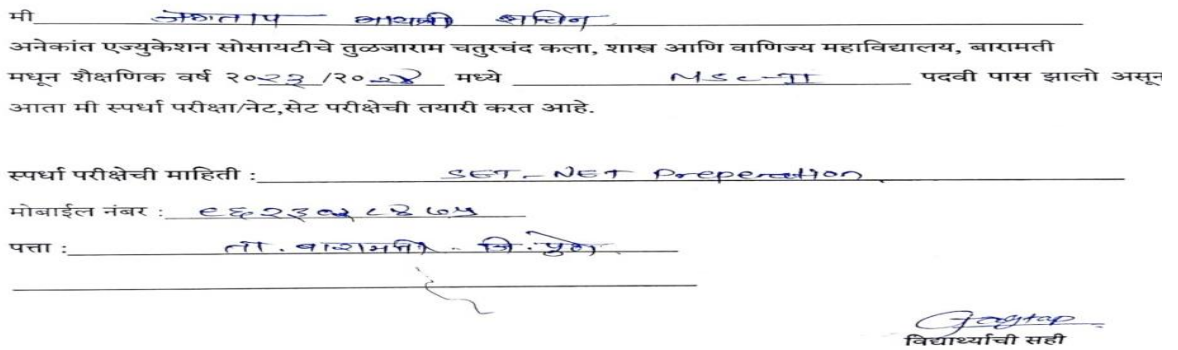 मी जगताप गायत्री सचिन
अनेकांत एज्युकेशन सोसायटीचे तुळजाराम चतुरचंद कला, शास्त्र आणि वाणिज्य महाविद्यालय, बारामती
मधून शैक्षणिक वर्ष २०२३ /२०२४ मध्ये MSc-II पदवी पास झालो असून
आता मी स्पर्धा परीक्षा/नेट,सेट परीक्षेची तयारी करत आहे.
स्पर्धा परीक्षेची माहिती : SET-NET Preperation
मोबाईल नंबर :
पत्ता : ता. बारामती - जि. पुणे
Jagtap
विद्यार्थ्याची सही